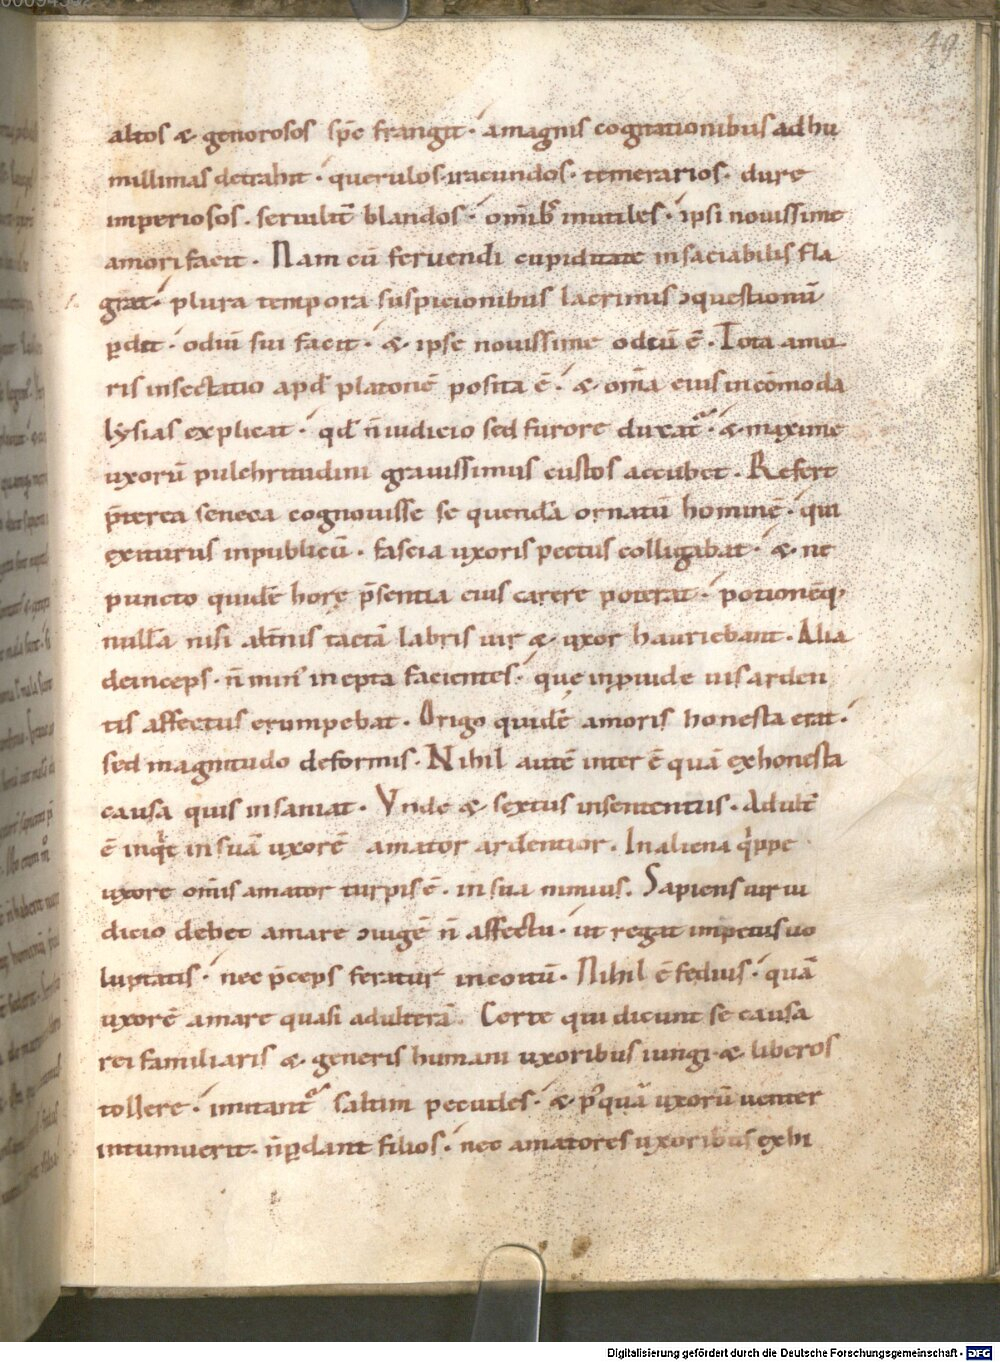 49
altos & generosos sp̄e frangit· amagnis cogitationibus ad hu
millimas detrahit· querulos· iracundos· temerarios· dure
imperiosos· seruilit̄ blandos· om̄ib; inutiles· ipsi nouissime
amori facit· Nam cū feruendi cupiditate insaciabilis fla
grat· plura tempora suspicionibus lacrimis ɔquestionū
ꝑdit· odiū sui facit· & ipse nouissime odiū ē· Tota amo
ris insectatio apd̄ platonē posita ē· & om̄a eius incōmoda
lysias explicat· qd̄ n̄ iudicio sed furore ducat᷑· & maxime
uxorū pulchritudini grauissimus custos accubet· Refert
p̄terea seneca cognouisse se quendā ornatū hominē· qui
exiturus inpublicū· fascia uxoris pectus colligabat· & ne
puncto quidē horę p̄sentia eius carere poterat· potionēq;
nullā nisi alt̄nis tactā labris uir & uxor hauriebant· Alia
deinceps· n̄ min᷒ inepta facientes· que inꝓuide uis arden
tis affectus erumpebat· Origo quidē amoris honesta erat·
sed magnitudo deformis· Nihil autē inter ē quā exhonesta
causa quis insaniat· Vnde & sextus insententiis· Adult̄
ē inqͥt insuā uxorē amator ardentior· In aliena qͥppe
uxore om̄is amator turpis ē· in sua nimius· Sapiens uir iu
dicio debet amare ɔiugē n̄ affectu· ut regat impetus uo
luptatis· nec p̄ceps feratur incoitū· Nihil ē fedius· quā
uxorē amare quasi adulterā· Certe qui dicunt se causa
rei familiaris & generis humani uxoribus iungi· & liberos
tollere· imitant᷑ saltim pecudes· & p᷒quā uxorū uenter
intumuerit· n̄ ꝑdant filios· nec amatores uxoribus exhi
Digitalisierung gefördert durch die Deutsche Forschungsgemeinschaft - DFG